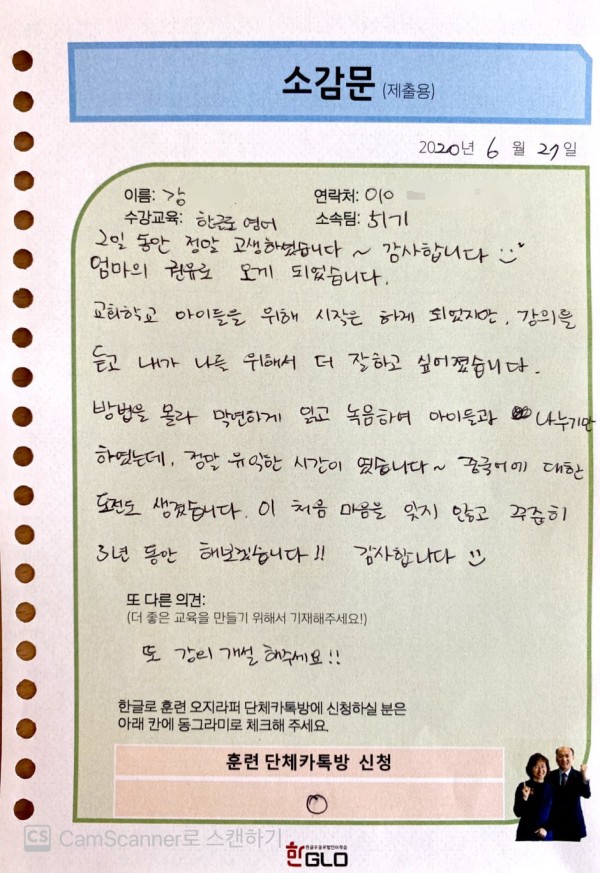 소감문 (제출용)
2020년 6월 27일
이름: 강
연락처: 010
수강교육: 한글로 영어
소속팀: 51기
2일 동안 정말 고생하셨습니다 ~ 감사합니다
엄마의 권유로 오게 되었습니다.
교회학교 아이들을 위해 시작은 하게 되었지만, 강의를
듣고 내가 나를 위해서 더 잘하고 싶어졌습니다.
방법을 몰라 막연하게 읽고 녹음하여 아이들과 나누기만
하였는데, 정말 유익한 시간이 였습니다~ 중국어에 대한
도전도 생겼습니다. 이 처음 마음을 잊지 않고 꾸준히
3년 동안 해보겠습니다!! 감사합니다
또 다른 의견:
(더 좋은 교육을 만들기 위해서 기재해주세요!)
또 강의 개설 해주세요!!
한글로 훈련 오지라퍼 단체카톡방에 신청하실 분은
아래 칸에 동그라미로 체크해 주세요.
훈련 단체카톡방 신청
CS CamScanner로 스캔하기
한GLO